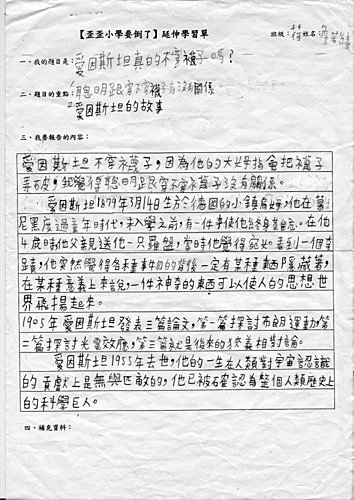 【歪歪小學要倒了】延伸學習單
班級： 姓名：
一、我的題目是：愛因斯坦真的不穿襪子嗎？
二、題目的重點：1聰明跟穿不穿襪子有沒有關係
2.愛因斯坦的故事
三、我要報告的內容：
愛因斯坦不穿襪子，因為他的大姆指會把襪子
弄破，我覺得聰明跟穿不穿襪子沒有關係。
愛因斯坦1879年3月14日生於德國的小鎮 他在慕
尼黑度過童年時代，未入學之前，有一件事使他終身難忘。在他
4歲時他父親送他一只羅盤，當時他覺得宛如看到一個奇
蹟，他突然覺得各種事物的背後一定有某種東西隱藏著，
在某種意義上來說，一件神奇的東西可以使人的思想世
界飛揚起來。
1905年愛因斯坦發表三篇論文，第一篇探討布朗運動，第
二篇探討光電效應，第三篇就是後來的狹義相對論。
愛因斯坦1955年去世，他的一生在人類對宇宙認識
的貢獻上是無與匹敵的，他已被確認為整個人類歷史上
的科學巨人。
四、補充資料：